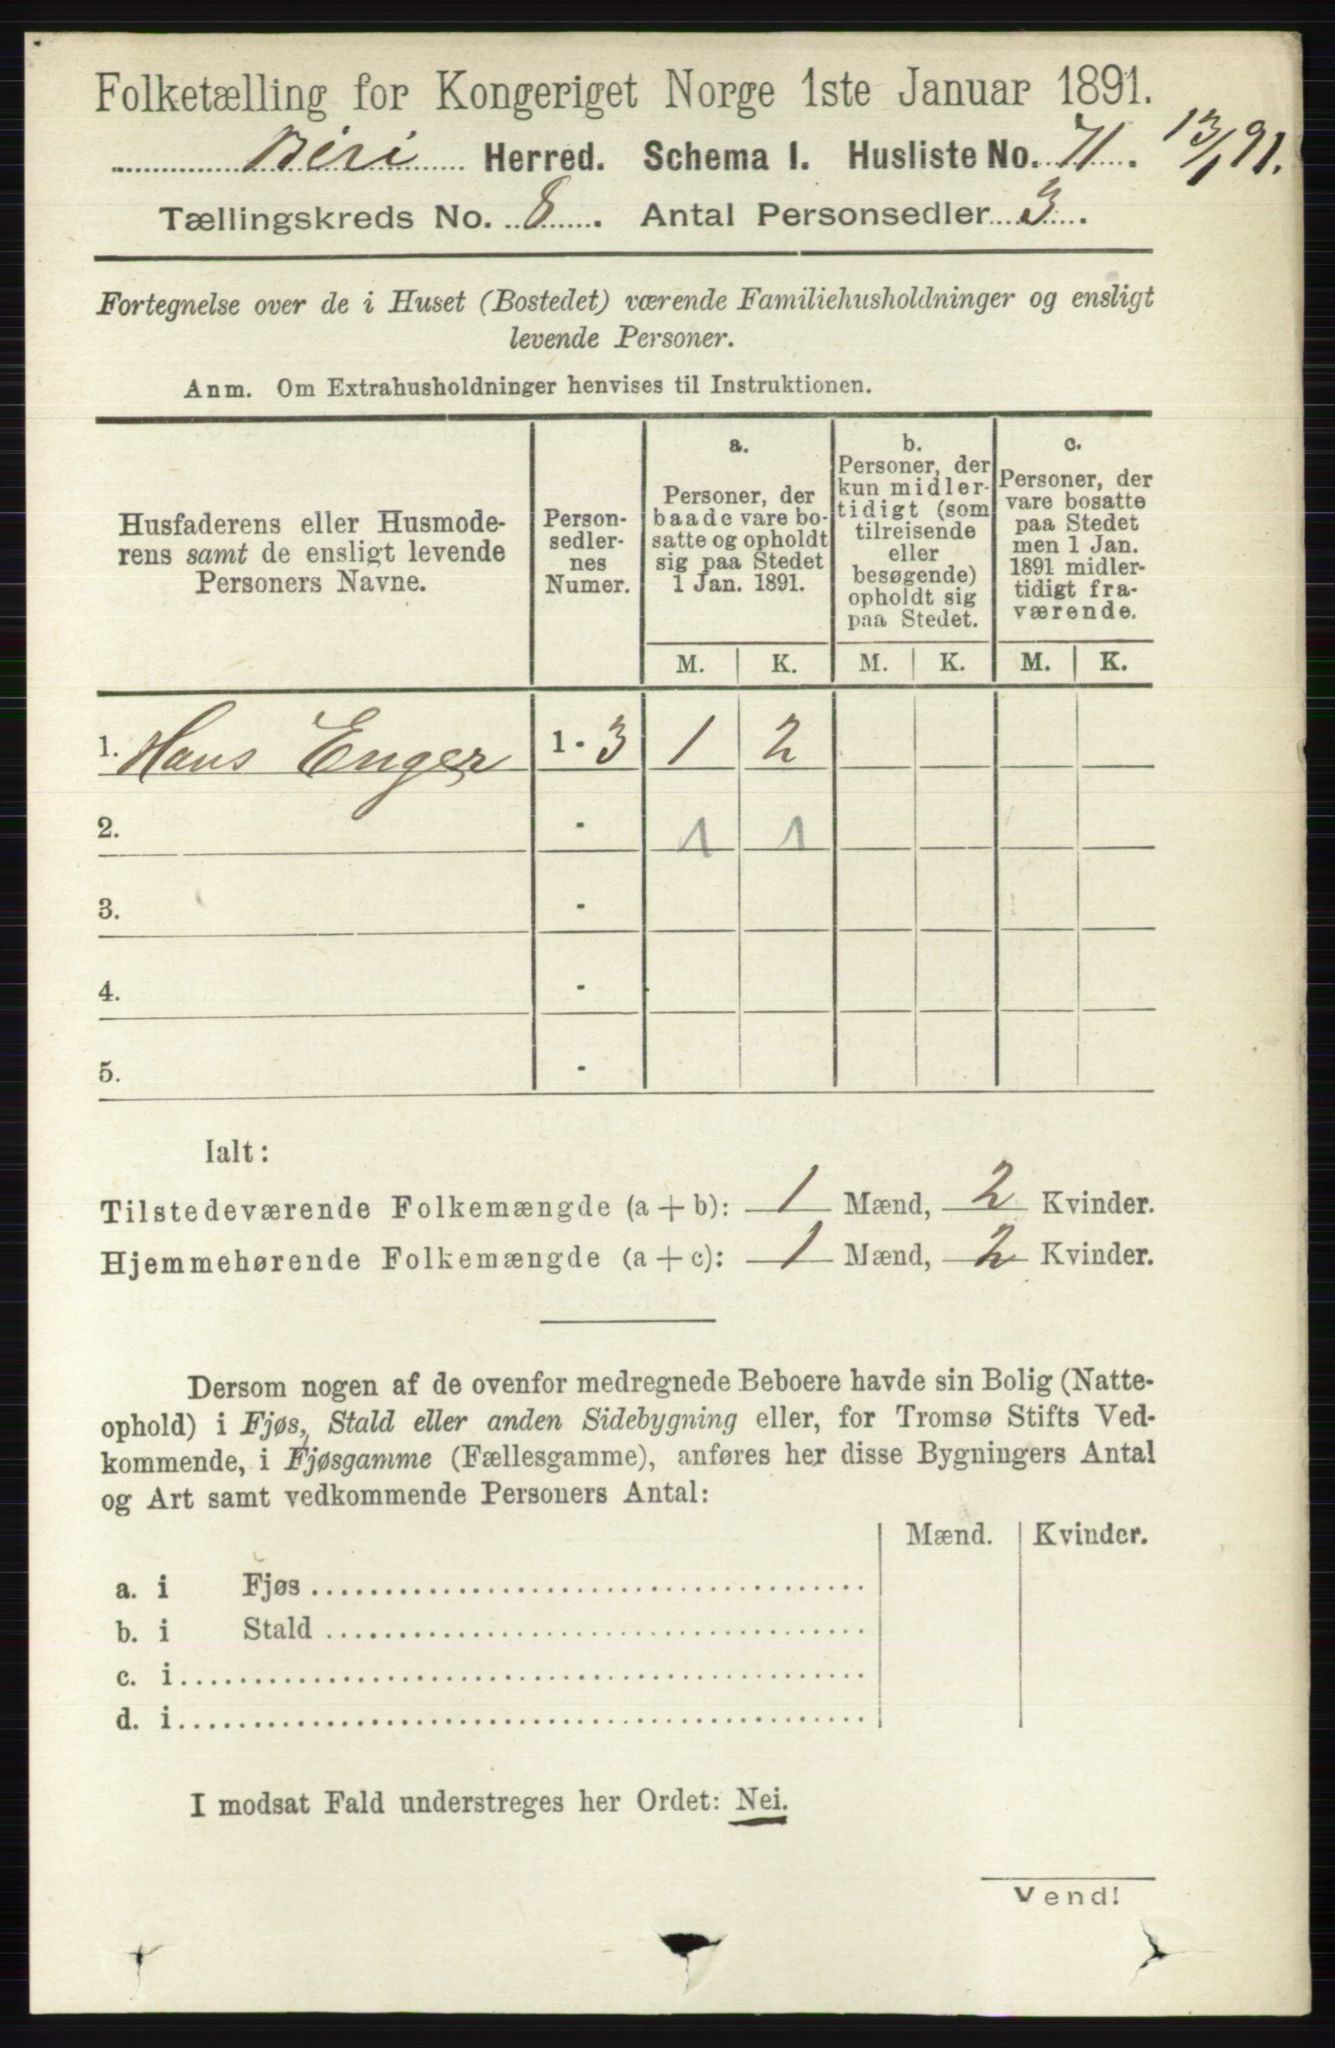 Folketælling for Kongeriget Norge 1ste Januar 1891.
Biri Herred. Schema I. Husliste No. 71. 13/1 91.
Tællingskreds No. 8. Antal Personsedler 3.
Fortegnelse over de i Huset (Bostedet) værende Familiehusholdninger og ensligt
levende Personer.
Anm. Om Extrahusholdninger henvises til Instruktionen.
Husfaderens eller Husmode-
rens samt de ensligt levende
Personers Navne.
Person-
sedler-
nes
Numer.
a.
Personer, der
baade vare bo-
satte og opholdt
sig paa Stedet
1 Jan. 1891.
b.
Personer, der
kun midler-
tidigt (som
tilreisende
eller
besøgende)
opholdt sig
paa Stedet.
c.
Personer, der
vare bosatte
paa Stedet
men 1 Jan.
1891 midler-
tidigt fra-
værende.
M. K. M. K. M. K.
1. Hans Enger 1 - 3 1 2
2. - 1 1
3. -
4. -
5. -
Ialt:
Tilstedeværende Folkemængde (a + b): 1 Mænd, 2 Kvinder.
Hjemmehørende Folkemængde (a + c): 1 Mænd, 2 Kvinder.
Dersom nogen af de ovenfor medregnede Beboere havde sin Bolig (Natte-
ophold) i Fjøs, Stald eller anden Sidebygning eller, for Tromsø Stifts Ved-
kommende, i Fjøsgamme (Fællesgamme), anføres her disse Bygningers Antal
og Art samt vedkommende Personers Antal:
Mænd. Kvinder.
a. i Fjøs
b. i Stald
c. i
d. i
I modsat Fald understreges her Ordet: Nei.
Vend!